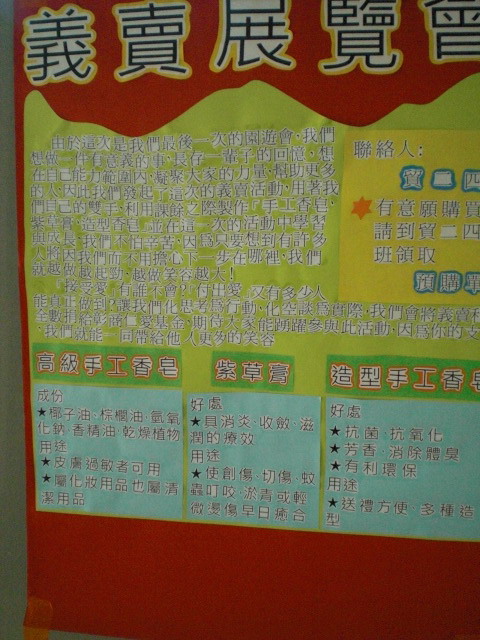 義賣展覽會
由於這次是我們最後一次的園遊會,我們
想做一件有意義的事,長存一輩子的回憶,想
在自己能力範圍內,凝聚大家的力量,幫助更多
的人,因此我們發起了這次的義賣活動,用著我
們自己的雙手,利用課餘之際製作『手工香皂,
紫草膏,造型香皂』並在這一次的活動中學習
與成長,我們不怕辛苦,因為只要想到有許多
人將因我們而不用擔心下一步在哪裡,我們
就越做越起勁,越做笑容越大!
「接受愛,有誰不會?付出愛,又有多少人
能真正做到?讓我們化思考為行動,化空談為實際,我們會將義賣
全數捐給彰商仁愛基金,期待大家能踴躍參與此活動,因為你的支
,我們就能一同帶給他人更多的笑容
聯絡人:
資二四
有意願購買
請到資二四
班領取
預購單
高級手工香皂
成份
★椰子油·棕櫚油·氫氧
化鈉·香精油·乾燥植物
用途
★皮膚過敏者可用
★屬化妝用品也屬清
潔用品
紫草膏
好處
★具消炎·收斂·滋
潤的療效
用途
★使創傷·切傷·蚊
蟲叮咬·淤青或輕
微燙傷早日癒合
造型手工香皂
好處
★抗菌·抗氧化
★芳香·消除體臭
★有利環保
用途
★送禮方便·多種造
型